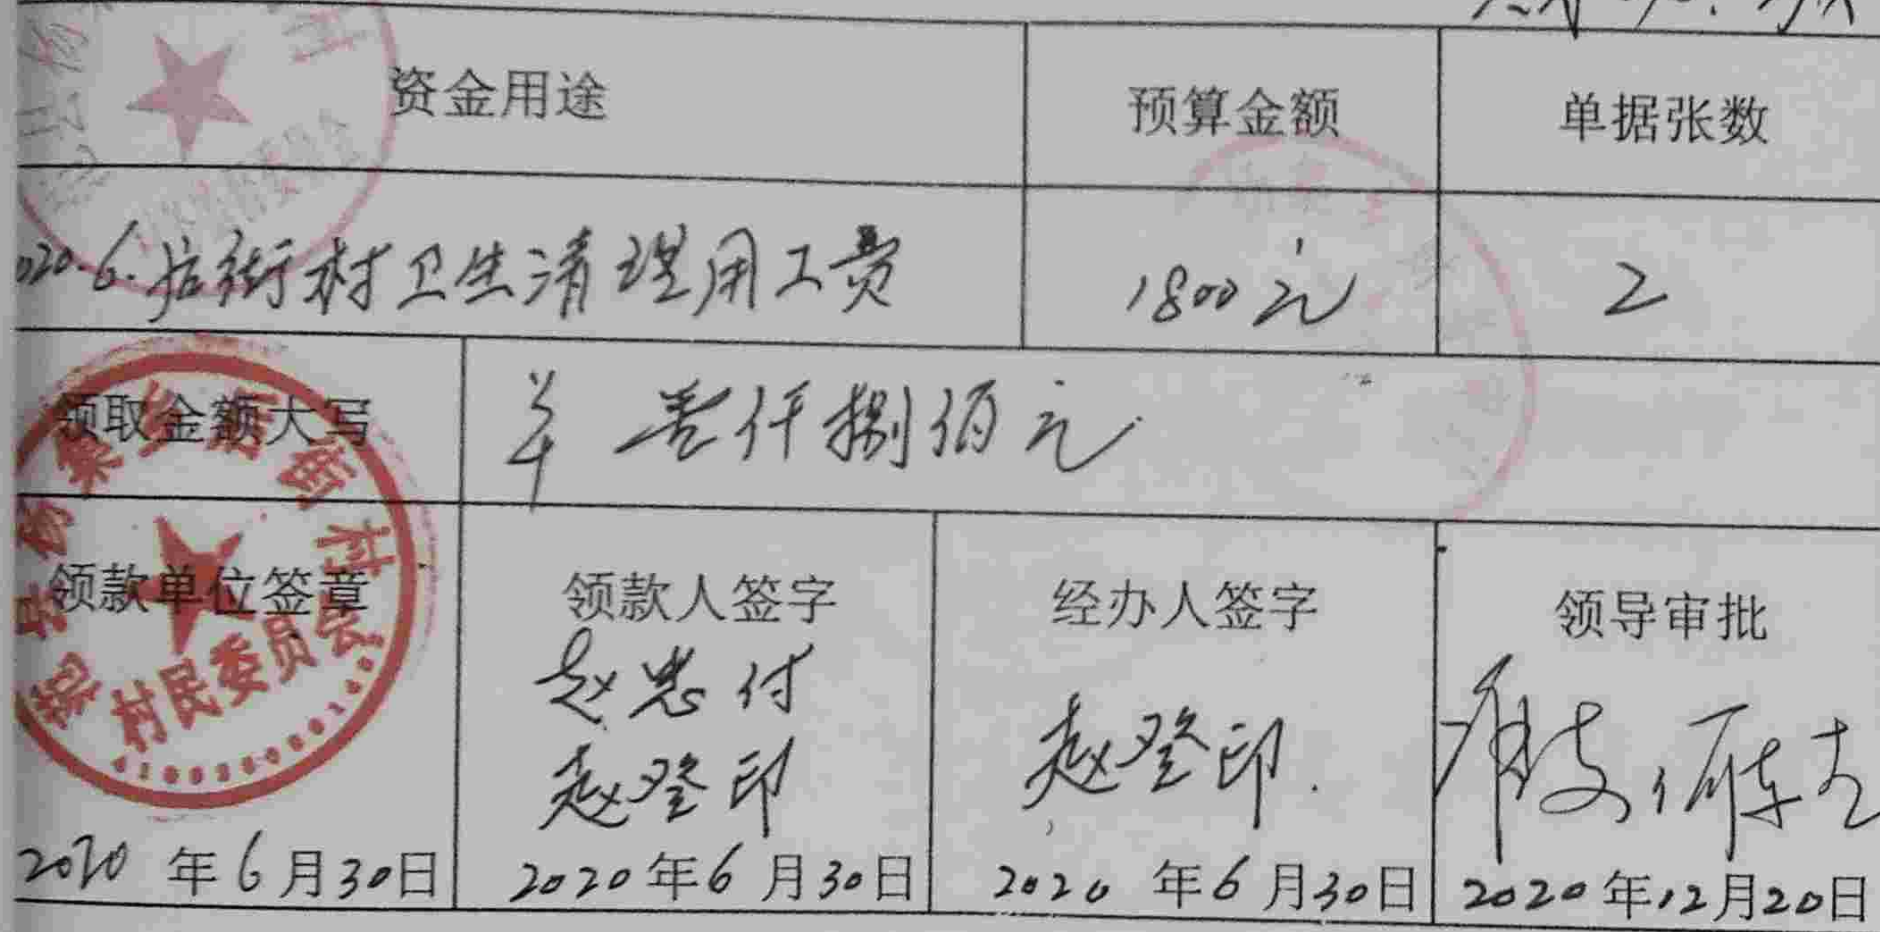 资金用途 预算金额 单据张数
020.6.后街村卫生清理用工费 1800元 2
领取金额大写 壹仟捌佰元
集乡后街村
村民委员会
领款单位签章 领款人签字 经办人签字 领导审批
赵忠付
赵登印 赵登印.
2020年6月30日 2020年6月30日 2020年6月30日 2020年12月20日